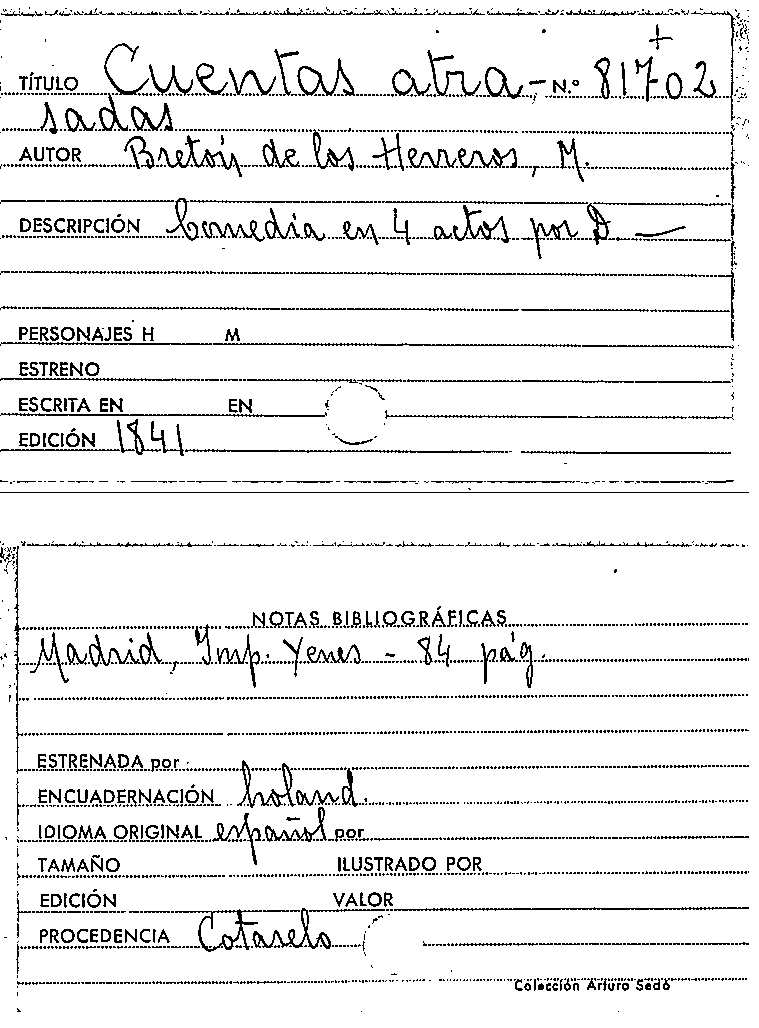 +
TÍTULO Cuentas atra- N.º 81702
sadas
AUTOR Bretón de los Herreros, M.
DESCRIPCIÓN Comedia en 4 actos por D. —
PERSONAJES H M
ESTRENO
ESCRITA EN EN
EDICIÓN 1841
NOTAS BIBLIOGRÁFICAS
Madrid, Imp. Yenes - 84 pág.
ESTRENADA por
ENCUADERNACIÓN holand.
IDIOMA ORIGINAL español por
TAMAÑO ILUSTRADO POR
EDICIÓN VALOR
PROCEDENCIA Cotarelo
Colección Arturo Sedó